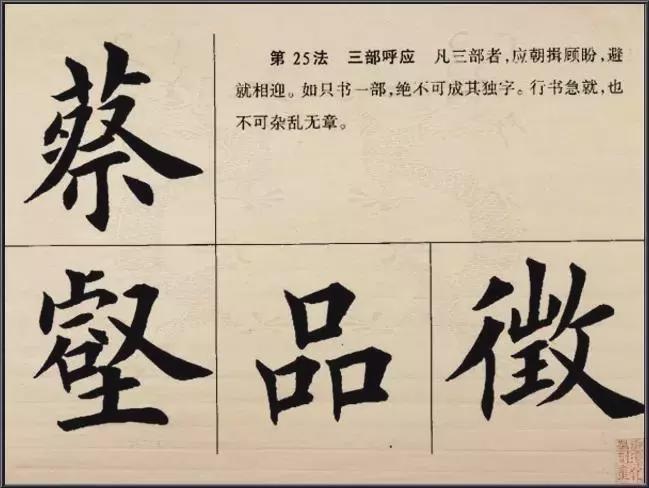 第25法 三部呼应 凡三部者,应朝揖顾盼,避
就相迎。如只书一部,绝不可成其独字。行书急就,也
不可杂乱无章。
蔡
壑
品
徵